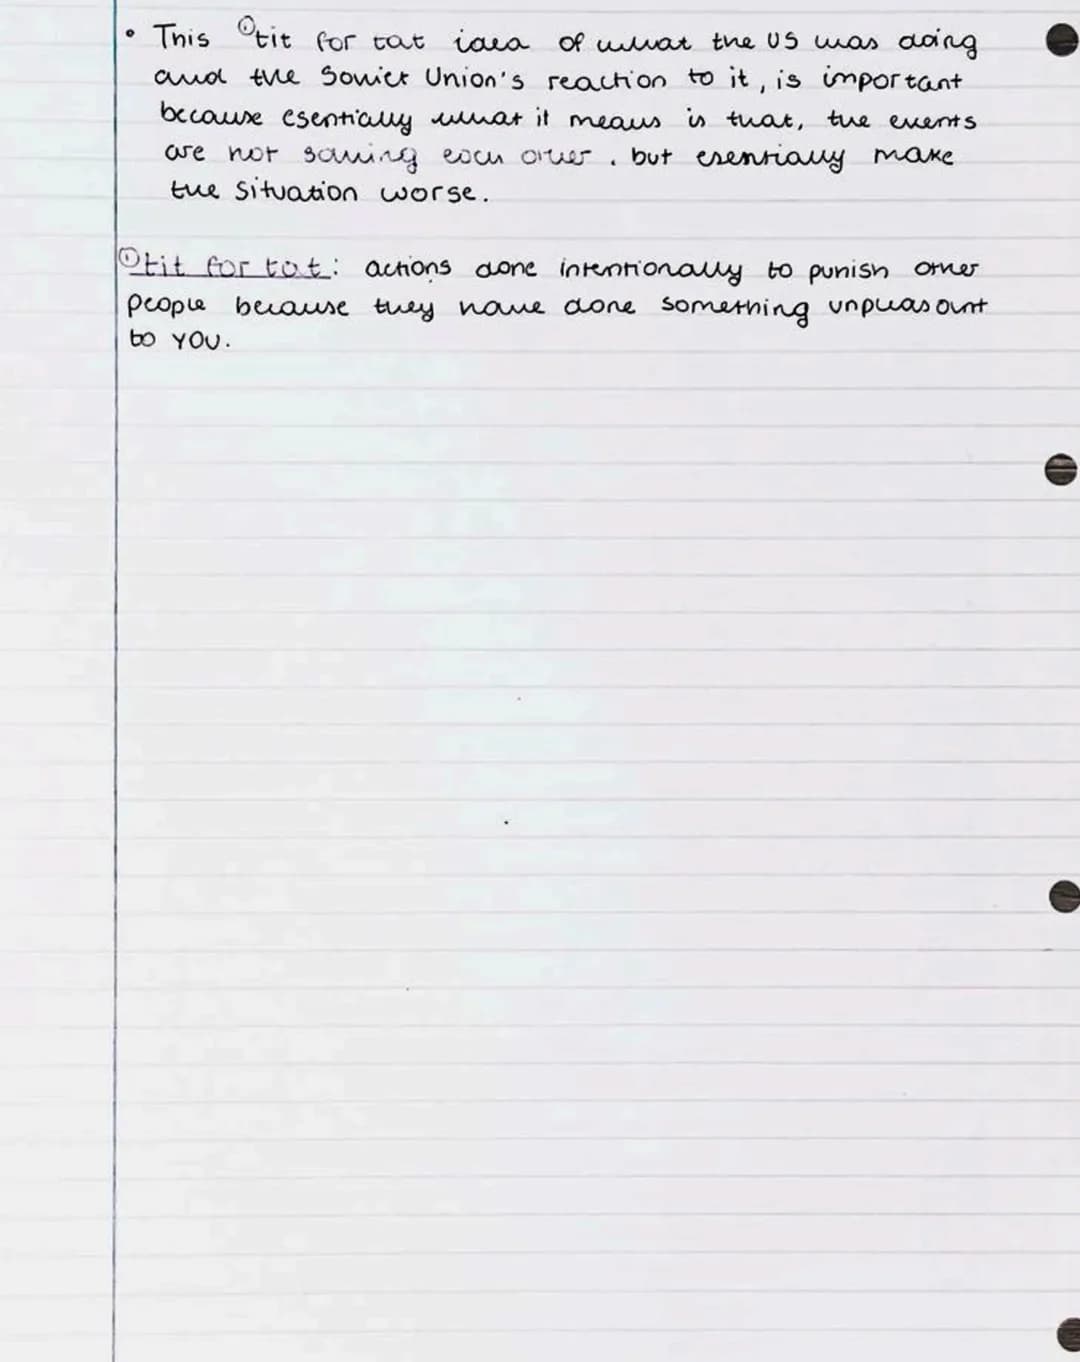 • This ①tit for tat idea of what the US was doing
and the Soviet Union's reaction to it, is important
because esentially what it means is that, the events
are not solving each other, but esentially make
the situation worse.
①tit for tat: actions done intentionally to punish other
people because they have done something unpleasant
to you.